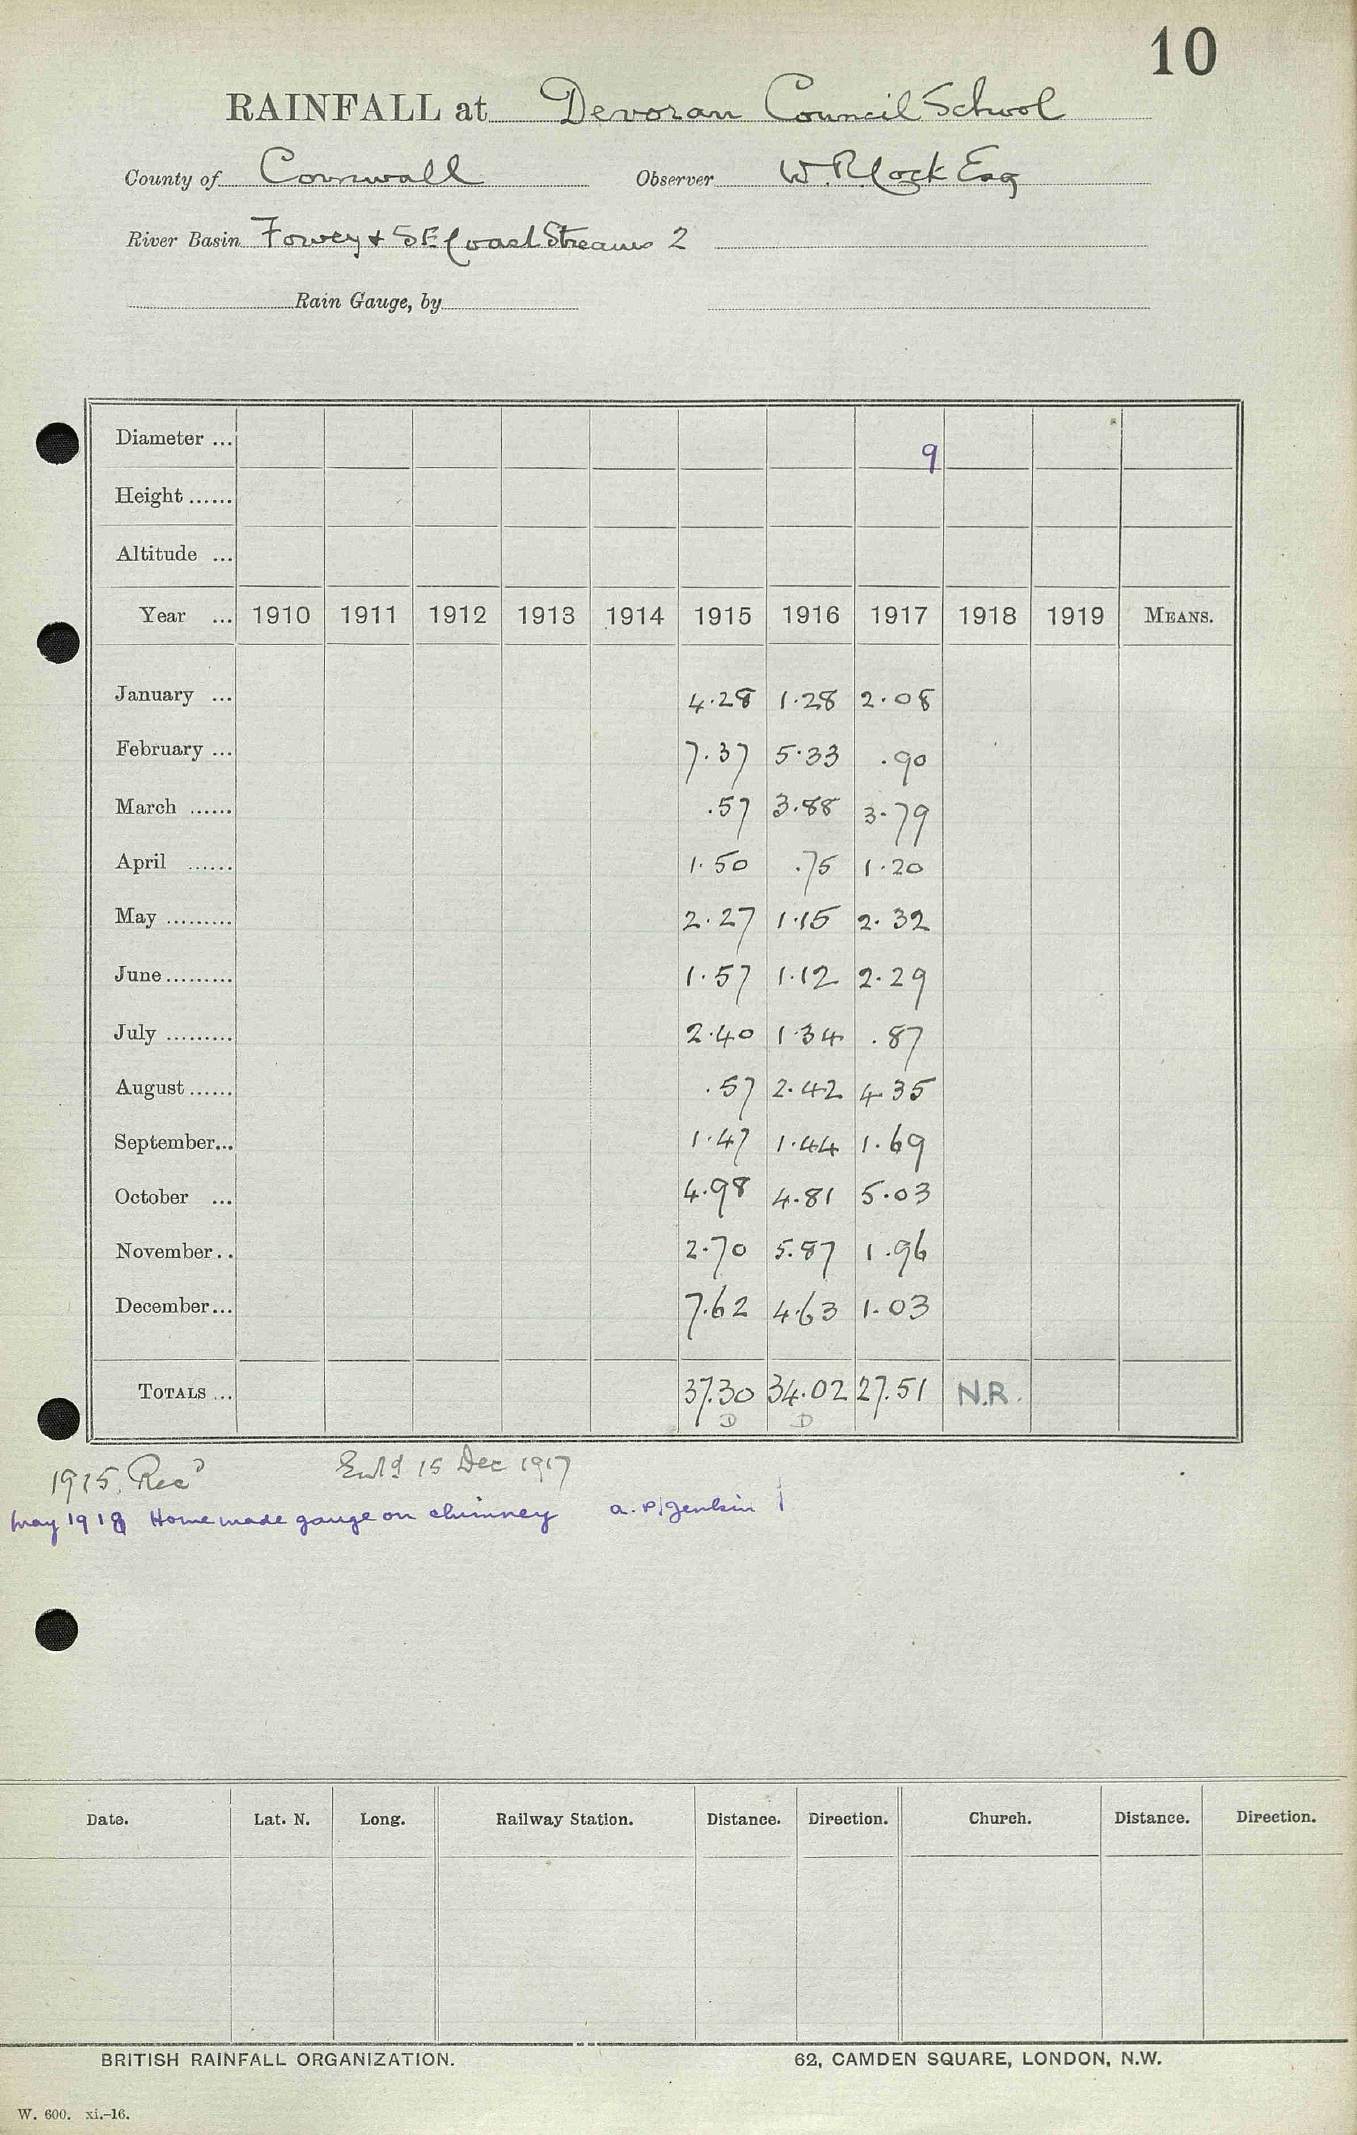 10
RAINFALL at Devoran Council School
County of Cornwall Observer W. R. Cock Esq
River Basin Fowey & SE Coast Streams 2
Rain Gauge, by
Diameter ... 9
Height ......
Altitude ...
Year ... 1910 1911 1912 1913 1914 1915 1916 1917 1918 1919 MEANS.
January ... 4.28 1.28 2.08
February ... 7.37 5.33 .90
March ...... .57 3.88 3.79
April ...... 1.50 .75 1.20
May ......... 2.27 1.15 2.32
June ......... 1.57 1.12 2.29
July ......... 2.40 1.34 .87
August ...... .57 2.42 4.35
September... 1.47 1.44 1.69
October ... 4.98 4.81 5.03
November.. 2.70 5.87 1.96
December... 7.62 4.63 1.03
TOTALS ... 37.30 34.02 27.51 N.R.
D D
1915 Recd 15 Dec 1917
May 1918 Home made gauge on chimney a. P. Jenkin
Date. Lat. N. Long. Railway Station. Distance. Direction. Church. Distance. Direction.
BRITISH RAINFALL ORGANIZATION. 62, CAMDEN SQUARE, LONDON, N.W.
W. 600. xi.-16.